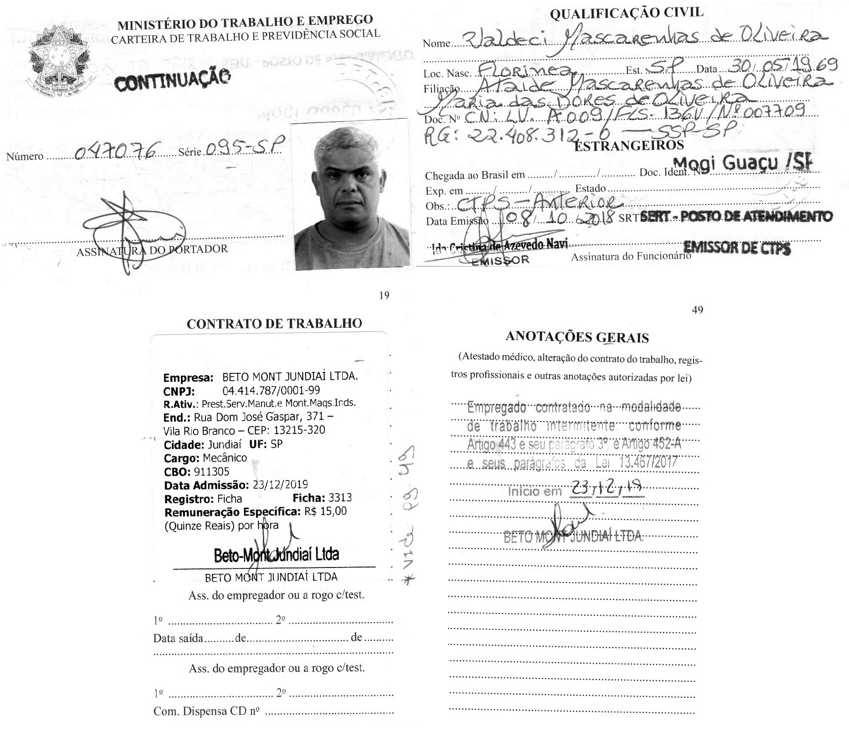 MINISTÉRIO DO TRABALHO E EMPREGO
CARTEIRA DE TRABALHO E PREVIDÊNCIA SOCIAL
CONTINUAÇÃO
Número 047076 Série 095-SP
ASSINATURA DO PORTADOR
QUALIFICAÇÃO CIVIL
Nome Valdeci Mascarenhas de Oliveira
Loc. Nasc. Florínea Est. SP Data 30/05/1969
Filiação Ataíde Mascarenhas de Oliveira
Maria das Dores de Oliveira
Doc. Nº CN: LV. A009/FLS. 136V/Nº 007709
RG: 22.408.312-6 — SSP-SP
ESTRANGEIROS
Mogi Guaçu /SP
Chegada ao Brasil em ....../....../...... Doc. Ident. Nº
Exp. em ....../....../...... Estado
Obs.: CTPS - Anterior
Data Emissão 08/10/2018 SRT SERT - POSTO DE ATENDIMENTO
Ida Cristina de Azevedo Navi EMISSOR DE CTPS
EMISSOR Assinatura do Funcionário
19
CONTRATO DE TRABALHO
Empresa: BETO MONT JUNDIAÍ LTDA.
CNPJ: 04.414.787/0001-99
R.Ativ.: Prest.Serv.Manut.e Mont.Maqs.Inds.
End.: Rua Dom José Gaspar, 371 –
Vila Rio Branco – CEP: 13215-320
Cidade: Jundiaí UF: SP
Cargo: Mecânico
CBO: 911305
Data Admissão: 23/12/2019
Registro: Ficha Ficha: 3313
Remuneração Específica: R$ 15,00
(Quinze Reais) por hora
Beto-Mont Jundiaí Ltda
BETO MONT JUNDIAÍ LTDA
Ass. do empregador ou a rogo c/test.
1º .......... 2º ..........
Data saída..........de..........de..........
Ass. do empregador ou a rogo c/test.
1º .......... 2º ..........
Com. Dispensa CD nº ..........
* Vide pg 49
49
ANOTAÇÕES GERAIS
(Atestado médico, alteração do contrato do trabalho, regis-
tros profissionais e outras anotações autorizadas por lei)
Empregado contratado na modalidade
de trabalho intermitente conforme
Artigo 443 e seu parágrafo 3º e Artigo 452-A
e seus parágrafos da Lei 13.467/2017
Início em 23/12/19
BETO MONT JUNDIAÍ LTDA.